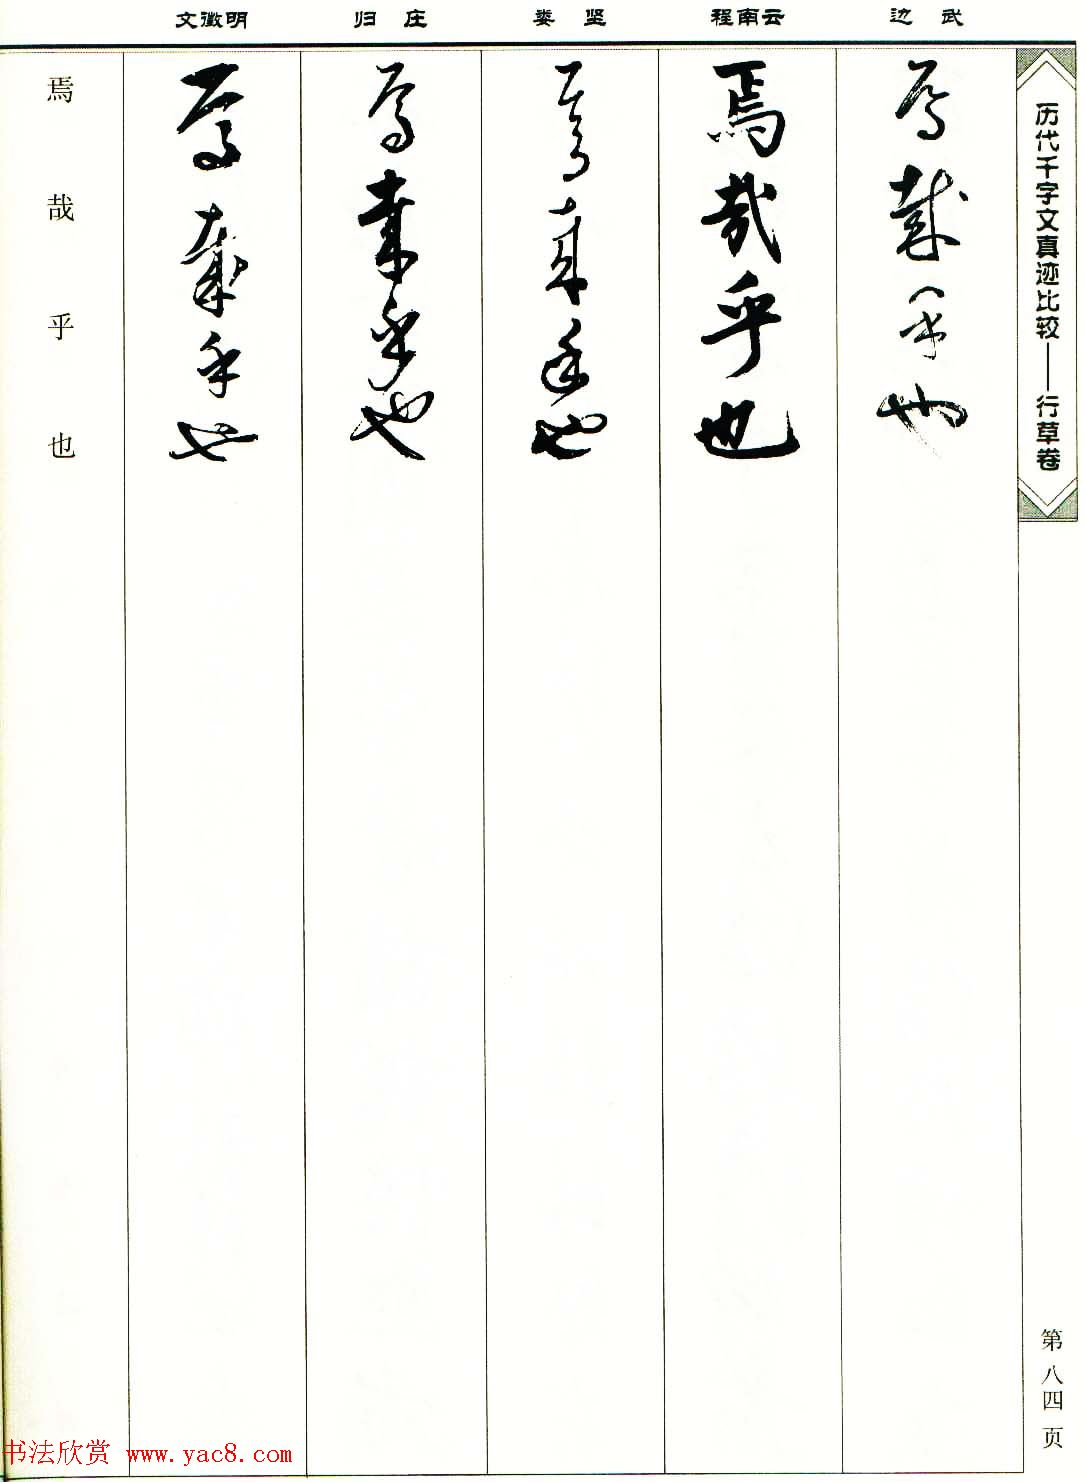 历代千字文真迹比较——行草卷
第八四页
武边
云南程
坚娄
庄归
明徵文
焉哉乎也
焉哉乎也
焉哉乎也
焉哉乎也
焉哉乎也
焉哉乎也
书法欣赏 www.yac8.com